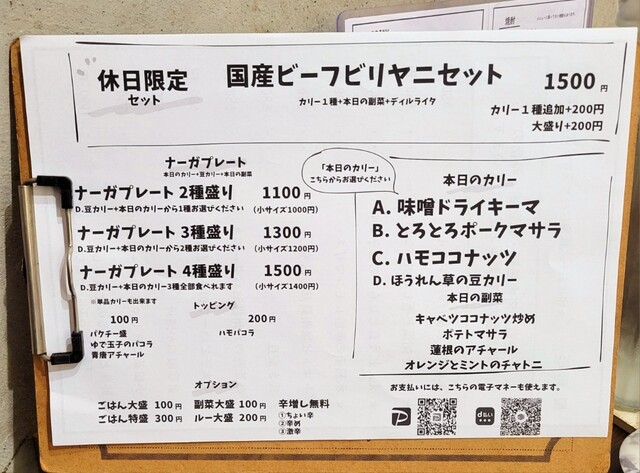 休日限定
セット
国産ビーフビリヤニセット 1500円
カリー1種+本日の副菜+ディルライタ
カリー1種追加+200円
大盛り+200円
ナーガプレート
本日のカリー+豆カリー+本日の副菜
ナーガプレート 2種盛り 1100円
D.豆カリー+本日のカリーから1種お選びください (小サイズ1000円)
ナーガプレート 3種盛り 1300円
D.豆カリー+本日のカリーから2種お選びください (小サイズ1200円)
ナーガプレート 4種盛り 1500円
D.豆カリー+本日のカリー3種全部食べれます (小サイズ1400円)
※単品カリーも出来ます
トッピング
100円
パクチー盛
ゆで玉子のパコラ
青唐アチャール
200円
ハモパコラ
オプション
ごはん大盛 100円 副菜大盛 100円 辛増し無料
ごはん特盛 300円 ルー大盛 200円 ①ちょい辛
②辛め
③激辛
「本日のカリー」
こちらからお選びください
本日のカリー
A. 味噌ドライキーマ
B. とろとろポークマサラ
C. ハモココナッツ
D. ほうれん草の豆カリー
本日の副菜
キャベツココナッツ炒め
ポテトマサラ
蓮根のアチャール
オレンジとミントのチャトニ
お支払いには、こちらの電子マネーも使えます。
d払い